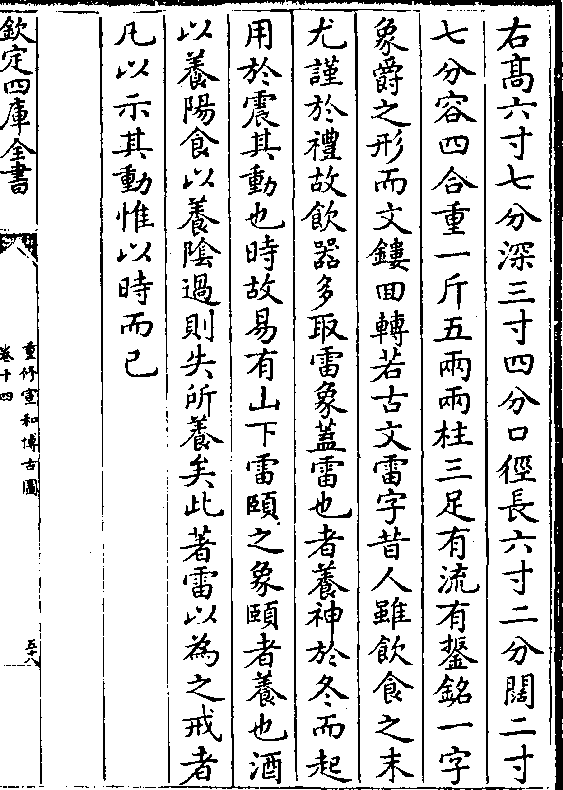 右髙六寸七分深三寸四分口徑長六寸二分闊二寸
七分容四合重一斤五兩兩柱三足有流有鋬銘一字
象爵之形而文鏤回轉若古文雷字昔人雖飲食之末
尤謹於禮故飲器多取雷象蓋雷也者養神於冬而起
用於震其動也時故易有山下雷頤之象頤者養也酒
以養陽食以養隂過則失所養矣此著雷以為之戒者
凡以示其動惟以時而已
欽定四庫全書
重修宣和博古圖
卷十四
五十八